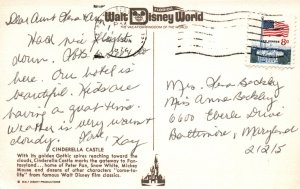 Dear Aunt
Had nice flight
down.
here. Our hotel is
beautiful. Kids are
having a great time.
Weather is very warm
cloudy. Love, Kay
Walt Disney World
THE VACATION KINGDOM OF THE WORLD
8c
Mrs.
Miss Anna
6600 Eberle Drive
Baltimore, Maryland
21215
CINDERELLA CASTLE
With its golden Gothic spires reaching toward the
clouds, Cinderella Castle marks the gateway to Fan-
tasyland... home of Peter Pan, Snow White, Mickey
Mouse and dozens of other characters "come-to-
life" from famous Walt Disney film classics.
© WALT DISNEY PRODUCTIONS